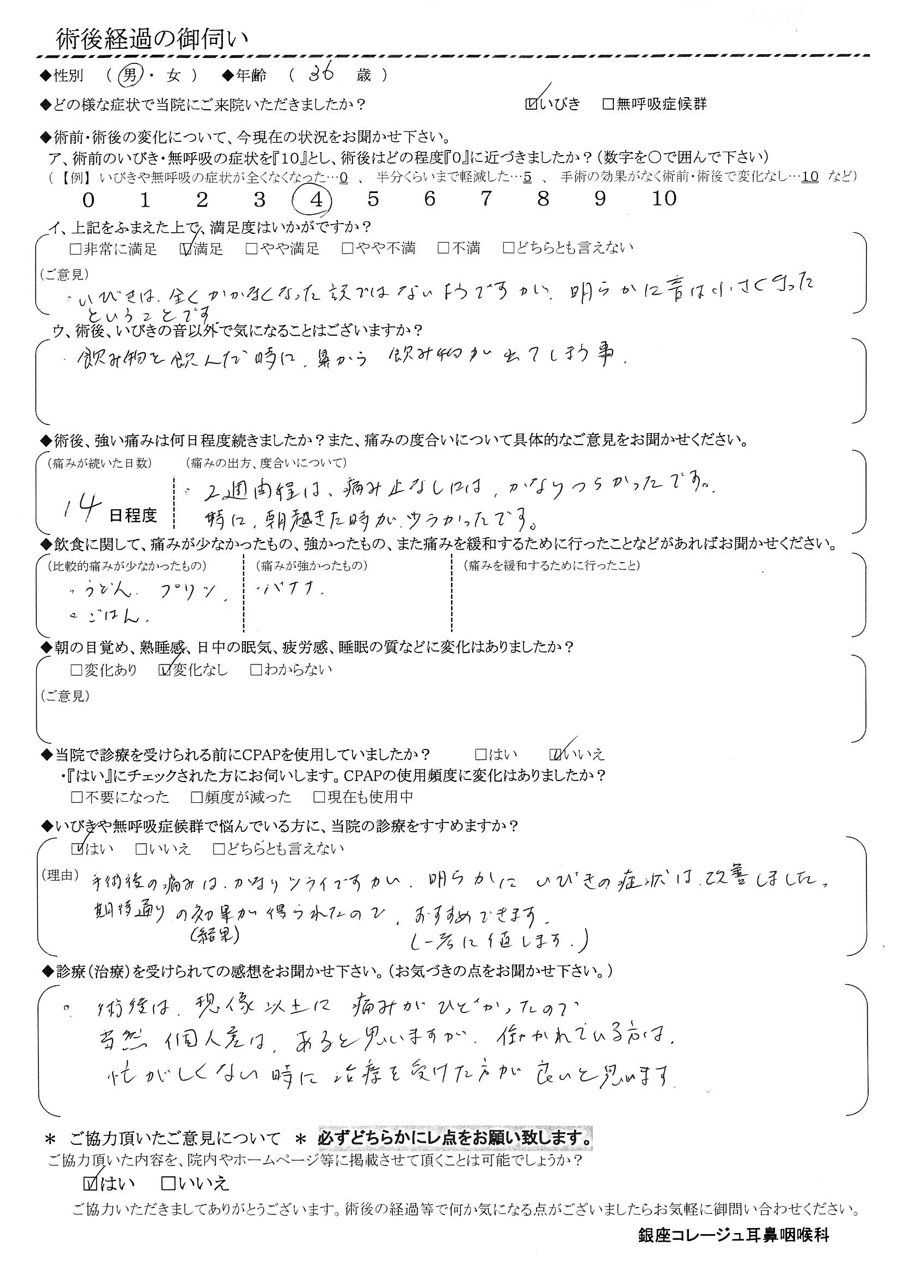 術後経過の御伺い
◆性別 （ 男 ・ 女 ） ◆年齢 （ 36 歳 ）
◆どの様な症状で当院にご来院いただきましたか？ ☑いびき □無呼吸症候群
◆術前・術後の変化について、今現在の状況をお聞かせ下さい。
ア、術前のいびき・無呼吸の症状を『10』とし、術後はどの程度『0』に近づきましたか？（数字を○で囲んで下さい）
（【例】いびきや無呼吸の症状が全くなくなった…0 、 半分くらいまで軽減した…5 、 手術の効果がなく術前・術後で変化なし…10 など）
0 1 2 3 4 5 6 7 8 9 10
イ、上記をふまえた上で、満足度はいかがですか？
□非常に満足 ☑満足 □やや満足 □やや不満 □不満 □どちらとも言えない
（ご意見）
・いびきは、全くかかなくなった訳ではないようですが、明らかに音は小さくなった
ということです。
ウ、術後、いびきの音以外で気になることはございますか？
・飲み物を飲んだ時に、鼻から 飲み物が出てしまう事.
◆術後、強い痛みは何日程度続きましたか？また、痛みの度合いについて具体的なご意見をお聞かせください。
（痛みが続いた日数） （痛みの出方、度合いについて）
14 日程度 ・2週間程は、痛み止なしには、かなりつらかったです。
特に、朝起きた時が、ツラかったです。
◆飲食に関して、痛みが少なかったもの、強かったもの、また痛みを緩和するために行ったことなどがあればお聞かせください。
（比較的痛みが少なかったもの） （痛みが強かったもの） （痛みを緩和するために行ったこと）
・うどん. プリン. ・バナナ.
・ごはん.
◆朝の目覚め、熟睡感、日中の眠気、疲労感、睡眠の質などに変化はありましたか？
□変化あり ☑変化なし □わからない
（ご意見）
◆当院で診療を受けられる前にCPAPを使用していましたか？ □はい ☑いいえ
・『はい』にチェックされた方にお伺いします。CPAPの使用頻度に変化はありましたか？
□不要になった □頻度が減った □現在も使用中
◆いびきや無呼吸症候群で悩んでいる方に、当院の診療をすすめますか？
☑はい □いいえ □どちらとも言えない
（理由） 手術後の痛みは、かなりツライですが、明らかに いびきの症状は、改善しました。
期待通りの効果が得られたので、おすすめできます.
（結果） （一考に値します.）
◆診療（治療）を受けられての感想をお聞かせ下さい。（お気づきの点をお聞かせ下さい。）
・ 術後は、現像以上に 痛みがひどかったので
当然 個人差は、あると思いますが、働かれている方は、
忙がしくない時に 治療を受けた方が 良いと思います.
＊ ご協力頂いたご意見について ＊ 必ずどちらかにレ点をお願い致します。
ご協力頂いた内容を、院内やホームページ等に掲載させて頂くことは可能でしょうか？
☑はい □いいえ
ご協力いただきましてありがとうございます。術後の経過等で何か気になる点がございましたらお気軽に御問い合わせください。
銀座コレージュ耳鼻咽喉科